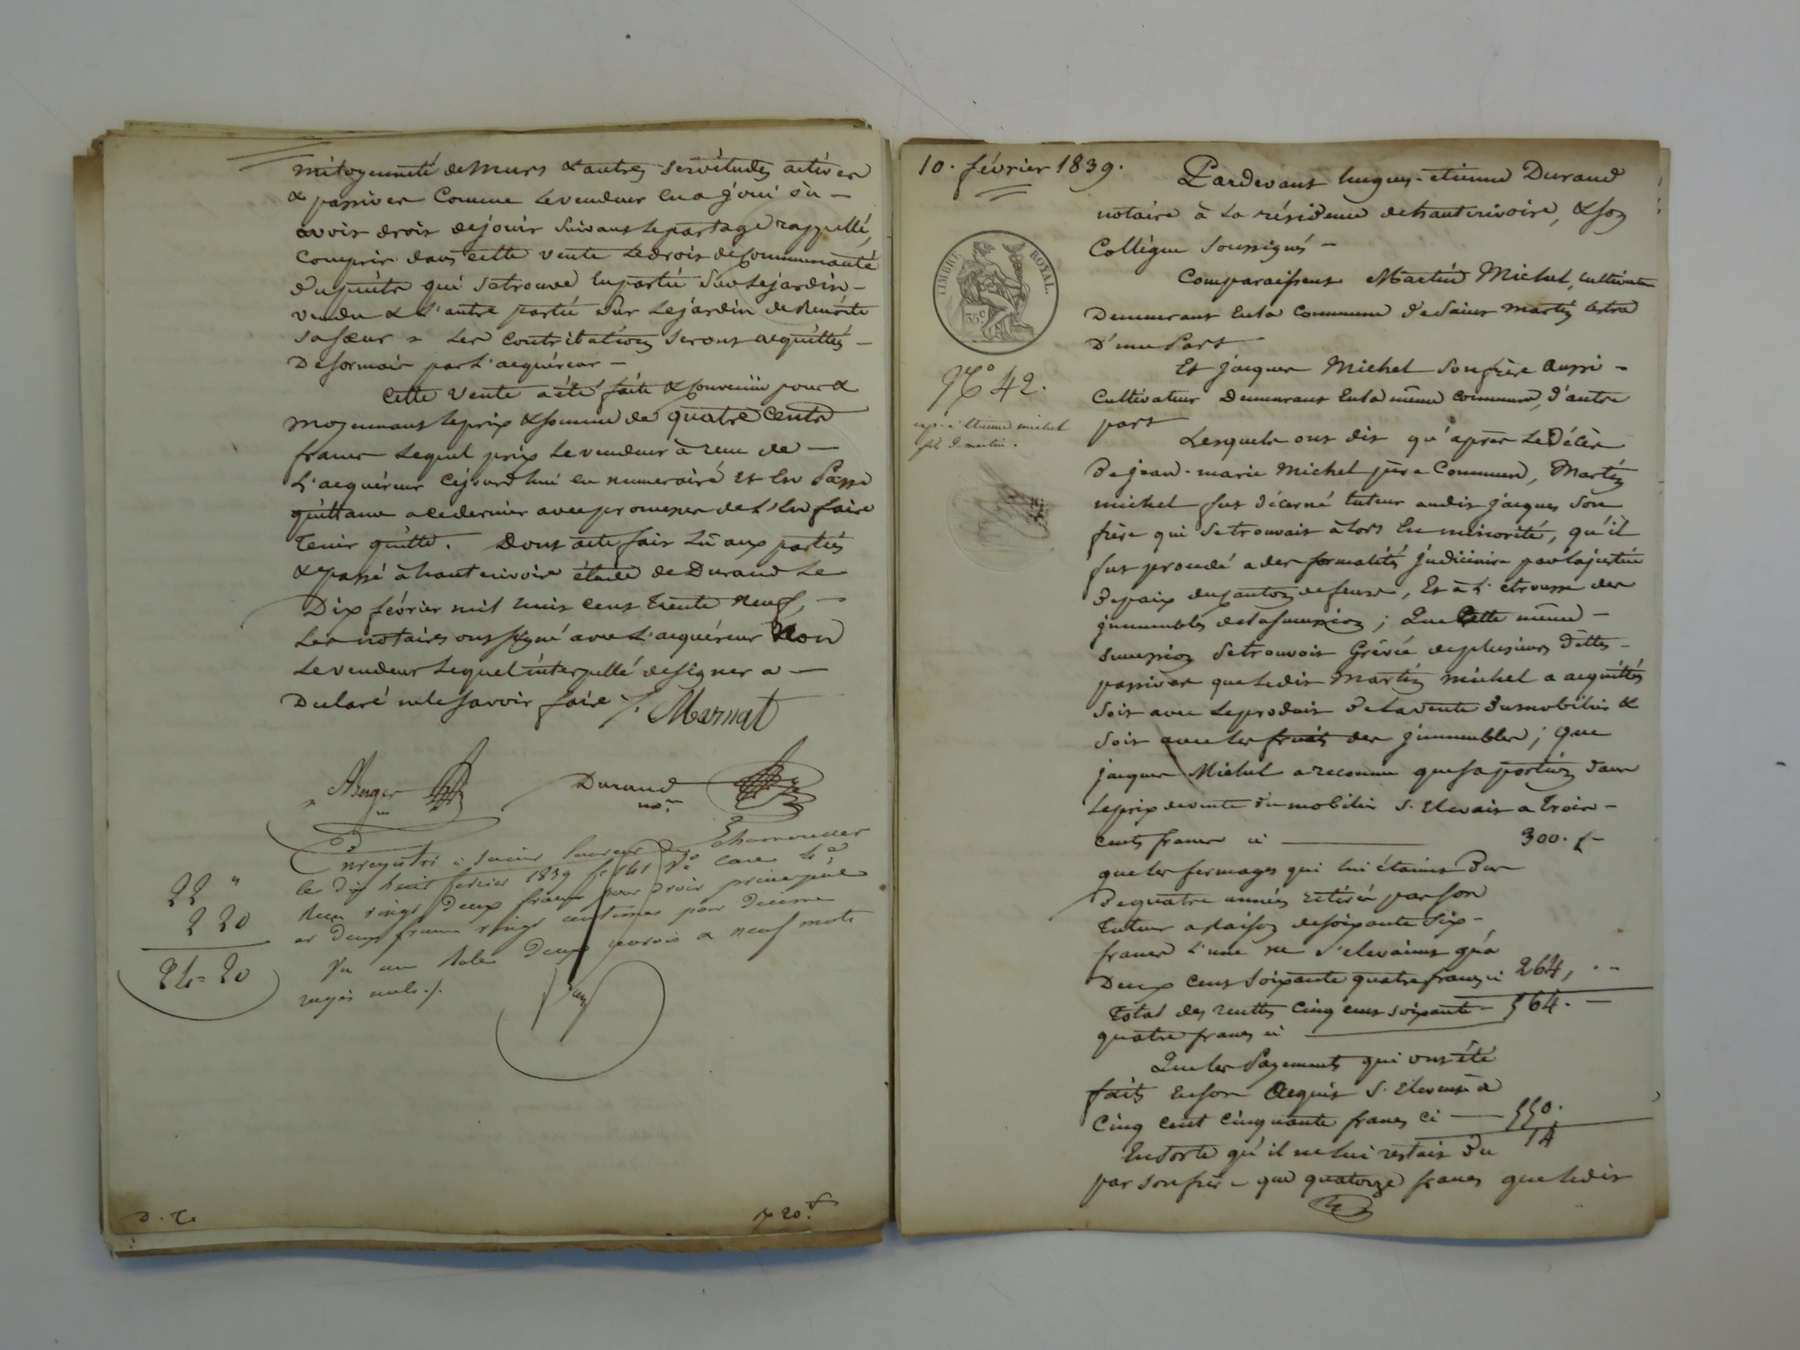 mitoyenneté de murs & autres servitudes actives
& passives comme le vendeur en a joui ou
avoir droit de jouir suivant le partage rappellé,
compris dans cette vente le droit de communauté
du puits qui se trouve en partie sur le jardin
vendu & l'autre partie sur le jardin de Benoite
sa sœur & les contributions seront acquittés
désormais par l'acquéreur
Cette vente a été faite & convenue pour &
moyennant le prix & somme de quatre cents
francs lequel prix le vendeur a reçu de
l'acquéreur cejourd'hui en numeraire et en passe
quittance a ce dernier avec promesse de l'en faire
tenir quitte. Dont acte fait lu aux parties
& passé à hautrivoire étude de Durand le
Dix février mil huit cent trente neuf,
les notaires ont signé avec l'acquéreur non
le vendeur lequel interpellé de signer a
Declaré ne le savoir faire /. Marnat
Berger Durand
nore
Enregistré à Saint Laurent de Chamousset
le dix huit février 1839 fo 161 Vo case 4e
Reçu vingt deux francs pour droit principal
et deux francs vingt centimes pour decime
22 "
2 20
24 - 20
Vu un Role Deux renvois & neuf mots
rayés nuls ./.
D. C.
10. février 1839.
Pardevant hugues-etienne Durand
notaire à la résidence de hauterivoire, & son
Collègue soussignés -
Comparaissent Martin Michel, cultivateur
Demeurant en la commune de Saint martin lestra
D'une part
Et jacques Michel son frère aussi -
Cultivateur Demeurant en la même commune, d'autre
part
TIMBRE ROYAL.
35 c
No 42.
exp. à Etienne michel
fils de martin.
Lesquels ont dit qu'après le Décès
De jean-marie Michel père commun, Martin
michel fut décerné tuteur audit jacques son
frère qui se trouvait alors en minorité, qu'il
fut procédé a des formalités judiciaire par la justice
de paix du canton de feurs, Et à l'etrousse des
immeubles de la succession ; Que Cette même -
succession se trouvoit Grévée de plusieurs Dettes -
passives que ledit Martin Michel a acquittés
soit avec le produit de la vente du mobilier &
soit avec les fruits des immeubles ; Que
jacques Michel a reconnu que sa portion dans
le prix de vente du mobilier s'elevait a trois -
cents francs ci 300. f
que les fermages qui lui étaient Dus
De quatre années retirés par son
tuteur a raison de soixante six -
francs l'une ne s'elevaient qu'a
Deux cent soixante quatre francs ci 264,
Total des recettes Cinq cent soixante - 564. -
quatre francs ci
Que les Payements qui ont été
faits en son acquit s'elevent à
Cinq cent cinquante francs ci 550.
14
Ensorte qu'il ne lui restait Du
par son frère que quatorze francs que ledit